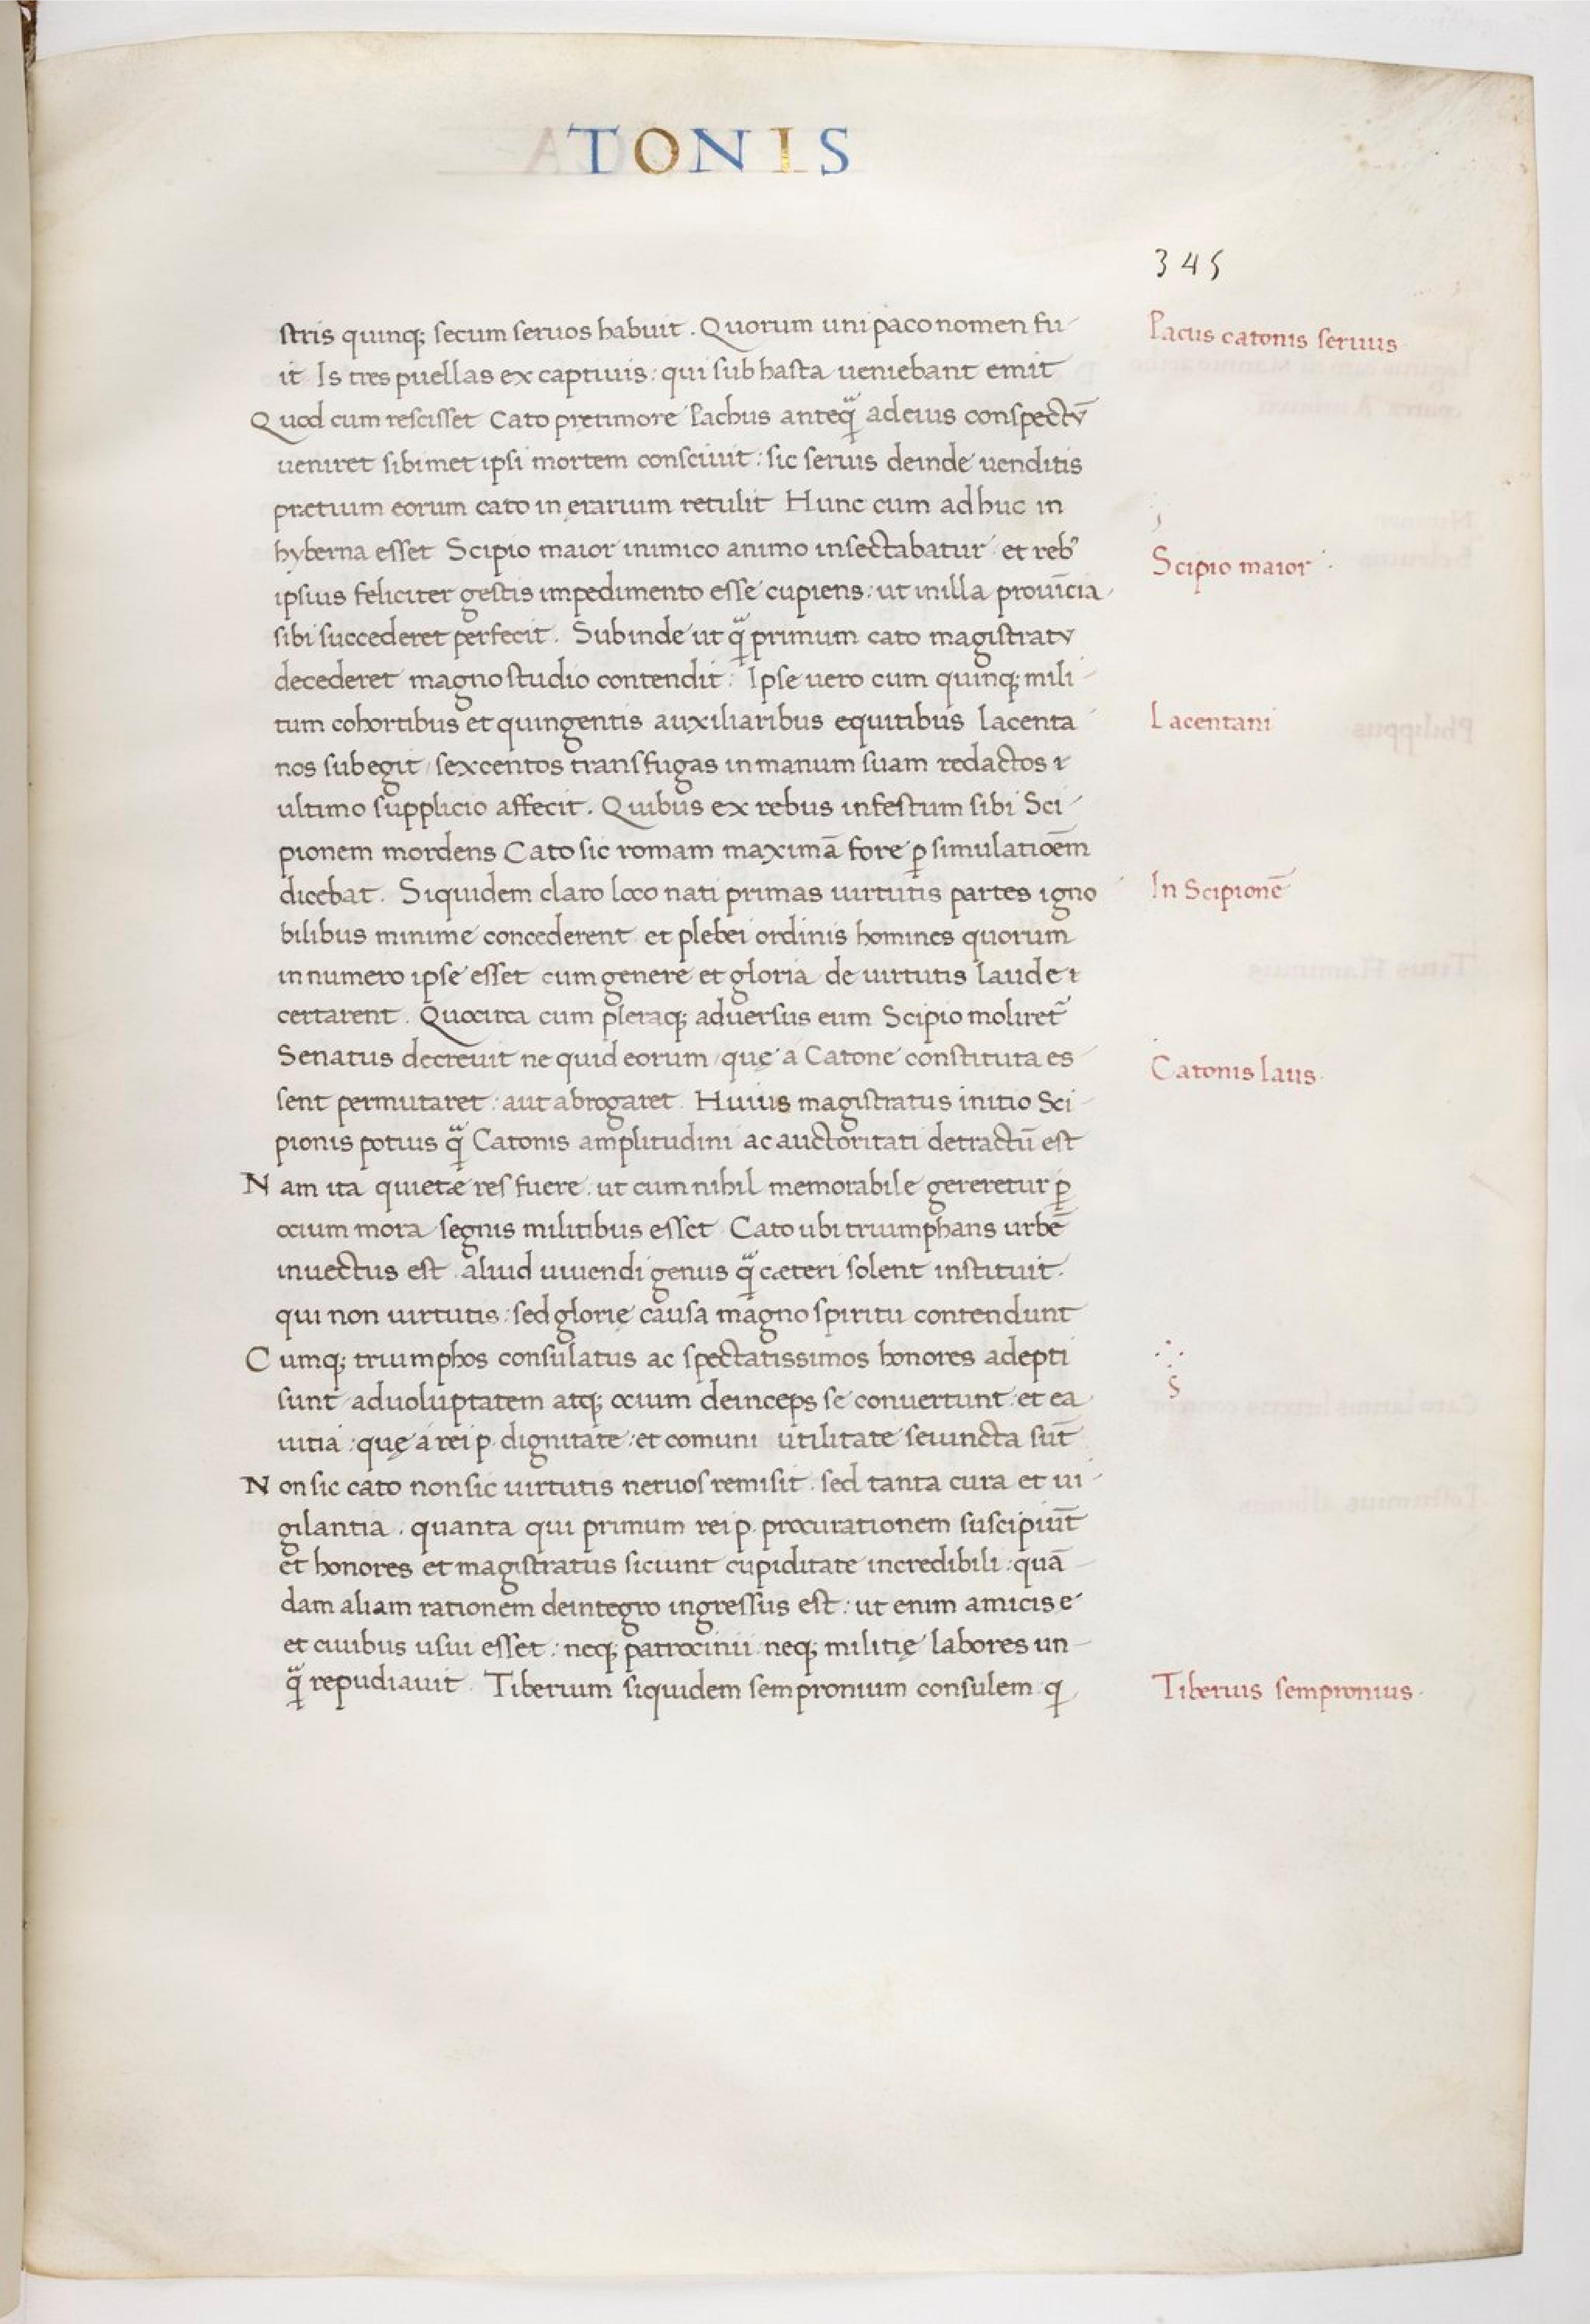 TONIS
345
stris quinq; secum seruos habuit. Quorum uni paco nomen fu-
Pacus catonis seruus
it Is tres puellas ex captiuis: qui sub hasta ueniebant emit
Quod cum rescisset Cato pre timore Pachus anteq̃ ad eius conspectū
ueniret sibimet ipsi mortem consciuit: sic seruis deinde uenditis
pretium eorum cato in ęrarium retulit Hunc cum ad huc in
hyberna esset Scipio maior inimico animo insectabatur et reb9
Scipio maior
ipsius feliciter gestis impedimento esse cupiens: ut in illa prouīcia
sibi succederet perfecit. Subinde ut q̃ primum cato magistratu
decederet magno studio contendit: Ipse uero cum quinq; mili-
tum cohortibus et quingentis auxiliaribus equitibus lacenta
Lacentani
nos subegit sexcentos transfugas in manum suam redactos
ultimo supplicio affecit. Quibus ex rebus infestum sibi Sci-
pionem mordens Cato sic romam maximā fore p̱ simulatiōem
dicebat. Siquidem claro loco nati primas uirtutis partes igno
In Scipionē
bilibus minime concederent et plebei ordinis homines quorum
in numero ipse esset cum genere et gloria de uirtutis laude
certarent. Quocirca cum pleraq; aduersus eum Scipio moliret̃
Senatus decreuit ne quid eorum quę a Catone constituta es-
Catonis laus.
sent permutaret: aut abrogaret. Huius magistratus initio Sci-
pionis potius q̃ Catonis amplitudini ac auctoritati detractū est
Nam ita quietæ res fuere ut cum nihil memorabile gereretur p̱
ocium mora segnis militibus esset Cato ubi triumphans urbē
inuectus est aliud uiuendi genus q̃ cæteri solent instituit.
qui non uirtutis: sed glorię causa magno spiritu contendunt
Cumq; triumphos consulatus ac spectatissimos honores adepti
sunt ad uoluptatem atq; ocium deinceps se conuertunt et ea
S
uitia: quę a rei p. dignitate: et comuni utilitate seiuncta sūt
Non sic cato non sic uirtutis neruos remisit. sed tanta cura et ui-
gilantia. quanta qui primum rei p. procurationem suscipiūt
et honores et magistratus siciunt cupiditate incredibili: quā-
dam aliam rationem de integro ingressus est: ut enim amicis e
et ciuibus usui esset: neq; patrocinii neq; militię labores un-
q̃ repudiauit. Tiberium siquidem sempronium consulem q
Tiberius sempronius.